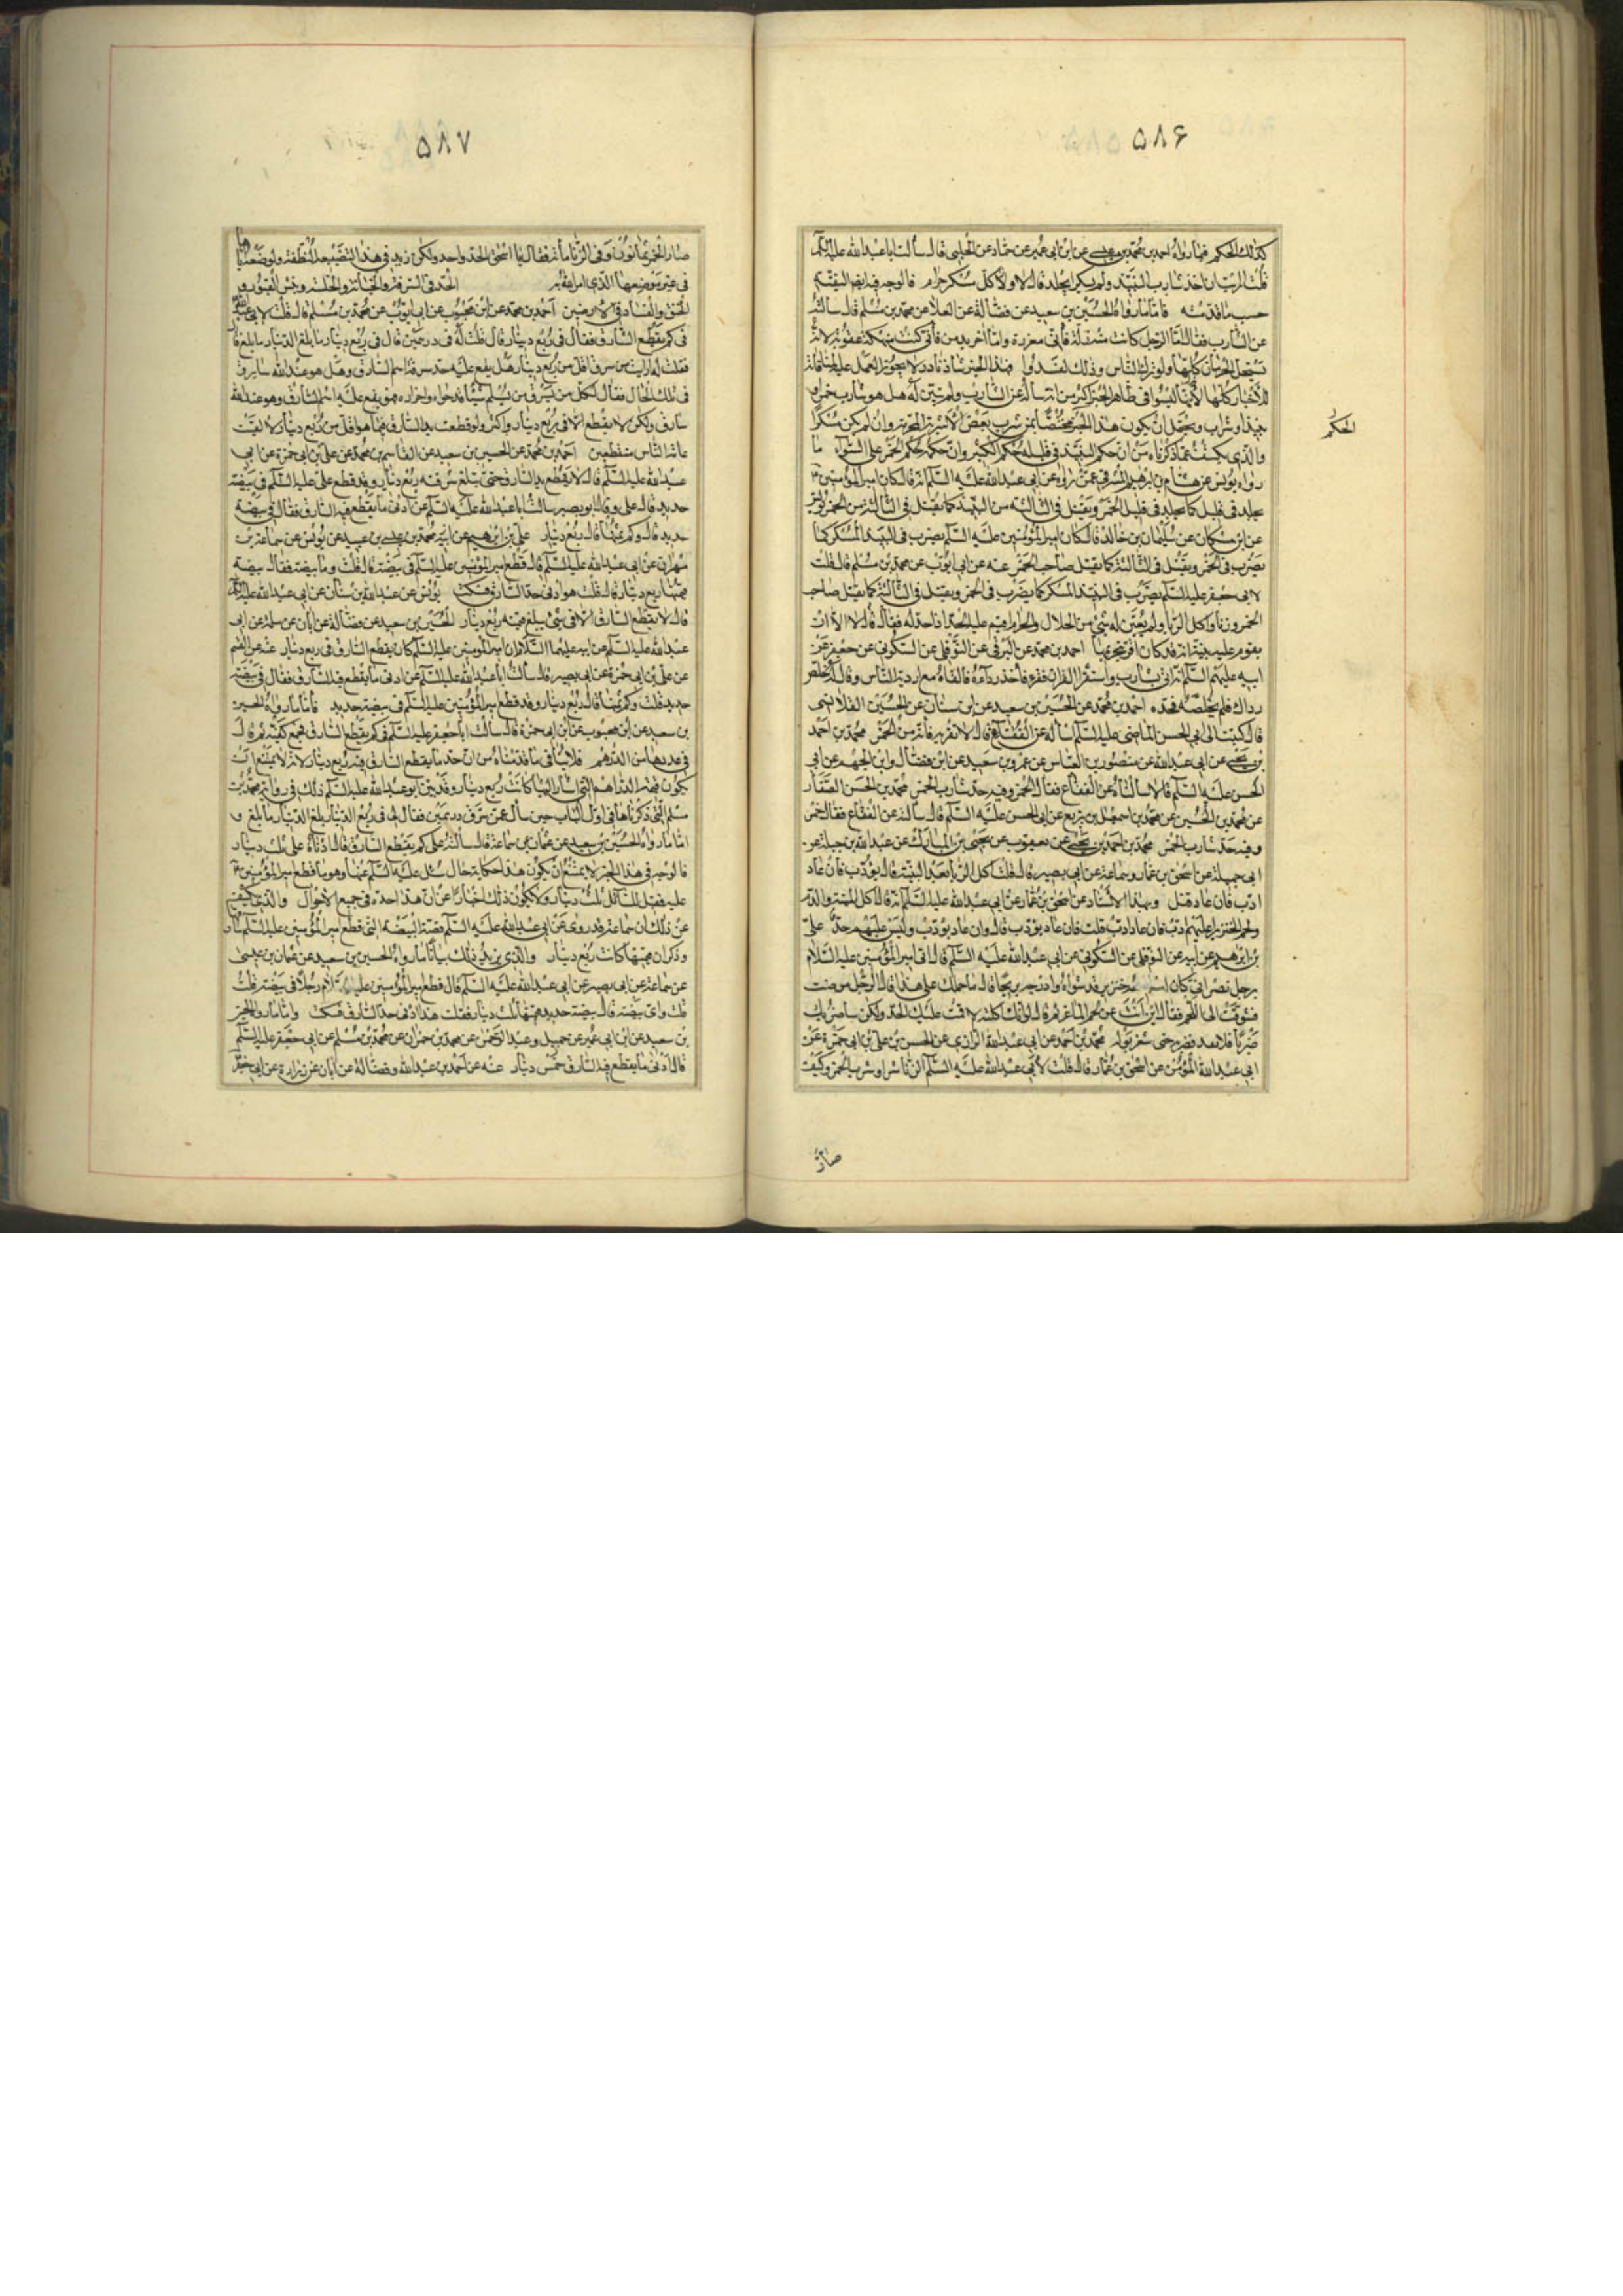 ۵۸۶
كذلك الحكم فما رواه احمد بن محمد بن عيسى عن ابن ابى عمير عن حماد عن الحلبى قال سألت ابا عبد الله عليه السلم
قلت ارأيت ان اخذ شارب النبيذ ولم يسكر ايجلد قال لا وكل مسكر حرام فالوجه فيه ايضا التقية
حسب ما قدمناه فاما ما رواه الحسين بن سعيد عن فضالة عن العلا عن محمد بن مسلم قال سألته
عن الشارب فقال اما الرجل كانت منه زلة فانى معزره واما آخر يدمن فانى كنت منهكه عقوبة لانه
يستحل الحرمات كلها ولو ترك الناس وذلك لفسدوا فهذا الخبر شاذ نادر لا يجوز العمل عليه
نبيذ او شراب ويحتمل ان يكون هذا الخبر مختصا بمن شرب بعض الاشربة المحرمة وان لم يكن مسكرا
الحكم
والذى يكشف عما ذكرناه من ان حكم النبيذ فى قليله حكم الكثير وان حكمه حكم الخمر على السواء ما
رواه يونس عن هشام بن ابرهيم المشرقى عمن رواه عن ابى عبد الله عليه السلم انه قال كان امير المؤمنين ع
يجلد فى قليل كما يجلد فى قليل الخمر ويقتل فى الثالثة من النبيذ كما يقتل فى الثالثة من الخمر يونس
عن ابن مسكان عن سليمان بن خالد قال كان امير المؤمنين عليه السلم يضرب فى النبيذ المسكر كما
يضرب فى الخمر ويقتل فى الثالثة كما يقتل صاحب الخمر عنه عن ابى ايوب عن محمد بن مسلم قال قلت
لابى جعفر عليه السلم يضرب فى النبيذ المسكر كما يضرب فى الخمر ويقتل فى الثالثة كما يقتل صاحب
الخمر وزنا واكل الربا ولم يتبين له شئ من الحلال والحرام اقيم عليه الحد اذا جهله فقال لا الا ان
يقوم عليه بينة انه قد كان اقر بتحريمها احمد بن محمد عن البرقى عن النوفلى عن السكونى عن جعفر عن
ابيه عليهم السلم انه اتى بشارب واستقرأ القران فقرأ فاخذ رداءه فالقاه مع اردية الناس وقال له خلص
رداك فلم يخلصه فحده احمد بن محمد عن الحسين بن سعيد عن ابن سنان عن الحسين القلانسى
قال كتبت الى ابى الحسن الماضى عليه السلم اسأله عن الفقاع فقال لا تقربه فانه من الخمر محمد بن احمد
بن يحيى عن ابى عبد الله عن منصور بن العباس عن عمرو بن سعيد عن ابن فضال وابن الجهم عن ابى
الحسن عليه السلم قالا سألناه عن الفقاع فقال الخمر وفيه حد شارب الخمر محمد بن الحسن الصفار
عن محمد بن الحسين عن محمد بن اسمعيل بن بزيع عن ابى الحسن عليه السلم قال سألته عن الفقاع فقال خمر
وفيه حد شارب الخمر محمد بن احمد بن يحيى عن يعقوب عن يحيى بن المبارك عن عبد الله بن جبلة عن
ابى جميلة عن اسحق بن عمار وسماعة عن ابى بصير قال قلت اكل الربا بعد البينة قال يؤدب فان عاد
ادب فان عاد قتل وبهذا الاسناد عن اسحق بن عمار عن ابى عبد الله عليه السلم انه قال اكل الميتة والدم
ولحم الخنزير عليهم ادب فان عاد ادب قلت فان عاد يؤدب قال وان عاد يؤدب وليس عليهم حد على
بن ابرهيم عن ابيه عن النوفلى عن السكونى عن ابى عبد الله عليه السلم قال اتى امير المؤمنين عليه السلام
برجل نصرانى كان اسلم ومعه خنزير قد شواه وادرجه بريحان قال ما حملك على هذا قال الرجل مرضت
فقرمت الى اللحم فقال اين انت عن لحم الماعز ثم قال لو انك اكلته لاقمت عليك الحد ولكن ساضربك
ضربا فلا تعد فضربه حتى شغر ببوله محمد بن احمد عن ابى عبد الله الرازى عن الحسن بن على بن ابى حمزة عن
ابى عبد الله المؤمن عن اسحق بن عمار قال قلت لابى عبد الله عليه السلم الزنا شر او شرب الخمر وكيف
صار
۵۸۷
صار الخمر ثمانون وفى الزنا مأة فقال يا اسحق الحد واحد ولكن زيد فى هذا لتضييعه النطفة ولوضعه اياها
فى غير موضعها الذى امر الله به الحد فى السرقة والخيانة والخلسة ونبش القبور و
الخنق والفساد فى الارضين احمد بن محمد عن ابن محبوب عن ابى ايوب عن محمد بن مسلم قال قلت لابى عبد الله
فى كم يقطع السارق فقال فى ربع دينار قال قلت له فى درهمين قال فى ربع دينار ما بلغ الدينار ما بلغ قال
فقلت له ارأيت من سرق اقل من ربع دينار هل يقع عليه حين سرق اسم السارق وهل هو عند الله سارق
فى تلك الحال فقال كل من سرق من مسلم شيئا قد حواه واحرزه فهو يقع عليه اسم السارق وهو عند الله
سارق ولكن لا يقطع الا فى ربع دينار واكثر ولو قطعت يد السارق فيما هو اقل من ربع دينار لالفيت
عامة الناس مقطعين احمد بن محمد عن الحسين بن سعيد عن القاسم بن محمد عن على بن ابى حمزة عن ابى
عبد الله عليه السلم قال لا يقطع يد السارق حتى تبلغ سرقته ربع دينار وقد قطع على عليه السلم فى بيضة
حديد قال على وقال ابو بصير سألت ابا عبد الله عليه السلم عن ادنى ما يقطع فيه السارق فقال فى بيضة
حديد قال وكم ثمنها قال ربع دينار على بن ابرهيم عن ابيه محمد بن عيسى بن عبيد عن يونس عن سماعة بن
مهران عن ابى عبد الله عليه السلم قال قطع امير المؤمنين عليه السلم فى بيضة قال قلت وما بيضة فقال بيضة
قيمتها ربع دينار قال قلت هو ادنى حد السارق فسكت يونس عن عبد الله بن سنان عن ابى عبد الله عليه السلم
قال لا يقطع السارق الا فى شئ يبلغ قيمته ربع دينار الحسين بن سعيد عن فضالة عن ابان عن سلمة عن ابى
عبد الله عليه السلم عن ابيه عليهما السلام ان امير المؤمنين عليه السلم كان يقطع السارق فى ربع دينار عنه عن القسم
عن على بن ابى حمزة عن ابى بصير قال سألت ابا عبد الله عليه السلم عن ادنى ما يقطع فيه السارق فقال فى بيضة
حديد قلت وكم ثمنها قال ربع دينار وقد قطع امير المؤمنين عليه السلم فى بيضة حديد فاما ما رواه الحسين
بن سعيد عن ابن محبوب عن ابن ابى حمزة قال سألت ابا جعفر عليه السلم فى كم يقطع السارق فجمع كفيه ثم قال
فى عددها من الدرهم فلا ينافى ما قدمناه من ان حد ما يقطع السارق فيه ربع دينار لانه لا يمتنع ان
يكون قيمة الدراهم التى اشار اليها كانت ربع دينار وقد بين ابو عبد الله عليه السلم ذلك فى رواية محمد بن
مسلم التى ذكرناها فى اول الباب حين سأل عمن سرق درهمين فقال لى فى ربع الدينار بلغ الدينار ما بلغ و
اما ما رواه الحسين بن سعيد عن عثمان عن سماعة قال سألته على كم يقطع السارق قال ادناه على ثلث دينار
فالوجه فى هذا الخبر لا يمتنع ان يكون هذا حكاية حال سئل عليه السلم عنها وهو ما قطع امير المؤمنين ع
عليه فقيل للسائل ثلث دينار ولا يكون ذلك اخبارا عن ان هذا حده فى جميع الاحوال والذى يكشف
عن ذلك ان سماعة قد روى عن ابى عبد الله عليه السلم قصة البيضة التى قطع امير المؤمنين عليه السلم سارقها
وذكر ان قيمتها كانت ربع دينار والذى يزيد ذلك بيانا ما رواه الحسين بن سعيد عن عثمان بن عيسى
عن سماعة عن ابى بصير عن ابى عبد الله عليه السلم قال قطع امير المؤمنين عليه السلام رجلا فى بيضة قلت
واى بيضة قال بيضة حديد قيمتها ثلث دينار فقلت هذا ادنى حد السارق فسكت واما ما رواه الحسين
بن سعيد عن ابن ابى عمير عن جميل وعبد الرحمن عن محمد بن حمران عن محمد بن مسلم عن ابى جعفر عليه السلم
قال ادنى ما يقطع فيه السارق خمس دينار عنه عن احمد بن عبد الله وفضالة عن ابان عن زرارة عن ابى جعفر